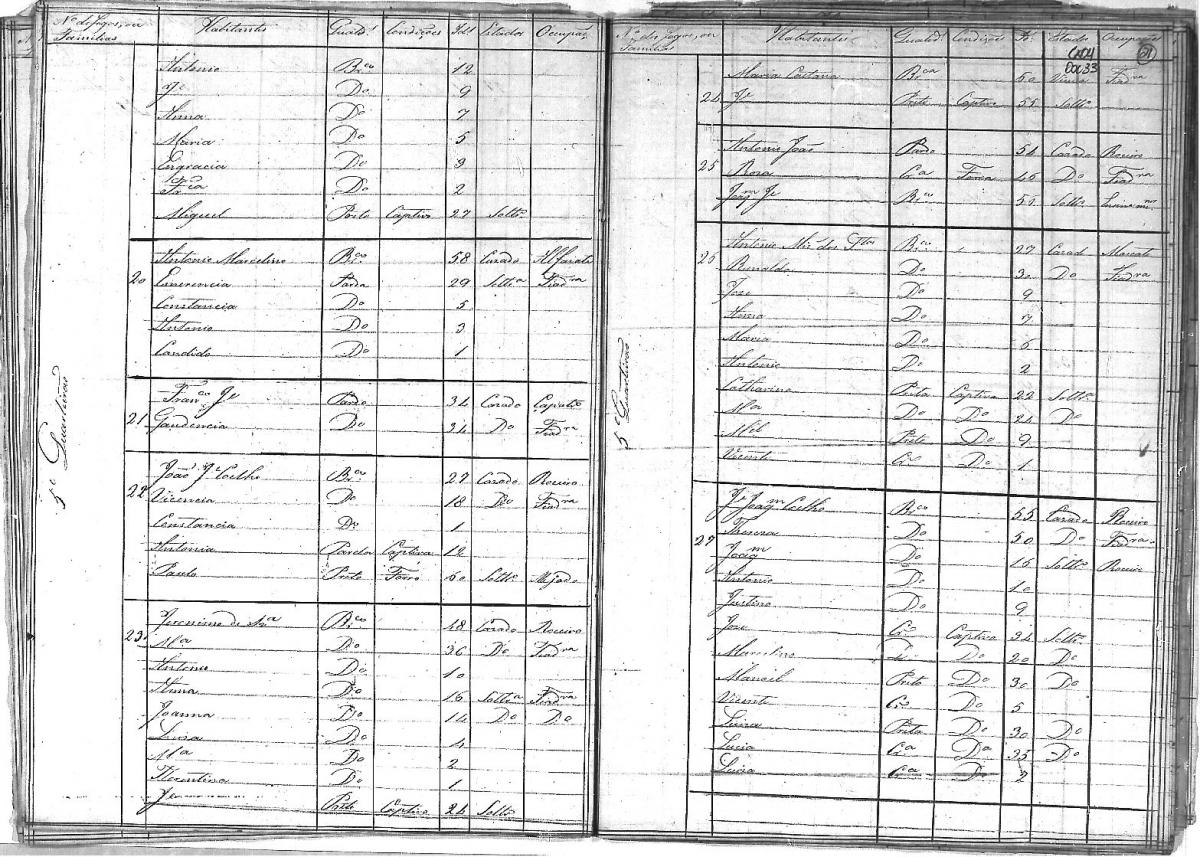 Nº de fogos, ou Familias Habitantes Qualid.ᵉ Condições Id.ᵉ Estados Ocupaç.
Antonio Br.ᶜᵒ 12
Jᵉ Dº 9
Anna Dº 7
Maria Dº 5
Engracia Dº 3
Frᶜⁱᵃ Dº 2
Miguel Preto Captivo 27 Soltº
20 Antonio Marcelino Br.ᶜᵒ 58 Cazado Alfaiate
Emerencia Parda 29 Soltª Fiadʳᵃ
Constancia Dº 5
Antonio Dº 3
Candido Dº 1
5º Quarteirão
21 Franᶜᵒ Jᵉ Pardo 34 Cazado
Gaudencia Dº 34 Dº Fiadʳᵃ
22 João Jᵉ Coelho Br.ᶜᵒ 27 Cazado Roceiro
Vicencia Dº 18 Dº Fiadʳᵃ
Constancia Dº 1
Antonia Parda Captiva 12
Paulo Preto Forro 60 Soltº
23 Jeronimo de Br.ᶜᵒ 48 Cazado Roceiro
Mª Dº 36 Dº Fiadʳᵃ
Antonio Dº 10
Anna Dº 16 Soltª Fiadʳᵃ
Joanna Dº 14 Dº Dº
Luisa Dº 4
Mª Dº 2
Florentina Dº 1
Jᵉ Preto Captivo 24 Soltº
Nº dos fogos, ou Familias Habitantes Qualid.ᵉ Condições Estado Ocupação
Maria Caetana Br.ᶜᵃ 50 Viuva Fiadʳᵃ
24 Jᵉ Preto Captivo 55 Soltº
25 Antonio João Pardo 54 Cazado Roceiro
Roza Cª Forra 46 Dº Fiadʳᵃ
Joaqᵐ Jᵉ Br.ᶜᵒ 55 Soltº
26 Antonio Br.ᶜᵒ 27 Cazado
Dº 30 Dº Fiadʳᵃ
Joze Dº 9
Anna Dº 7
Maria Dº 5
Antonio Dº 2
Catharina Preta Captiva 22 Soltª
Mª Dº Dº 24 Dº
Mᵉˡ Preto Dº 9
Vicente Cº Dº 1
5º Quarteirão
27 Jᵉ Joaqᵐ Coelho Br.ᶜᵒ 55 Cazado Roceiro
Thereza Dº 50 Dº Fiadʳᵃ
Joaqᵐ Dº 16 Soltº Roceiro
Antonio Dº 10
Justino Dº 9
Joze Cº Captivo 34 Soltº
Marcelino Cº Dº 20 Dº
Manoel Preto Dº 30 Dº
Vicente Cº Dº 5
Luiza Preta Dº 30 Dº
Lucia Cª Dº 35 Dº
Luiza Cª Dº 2